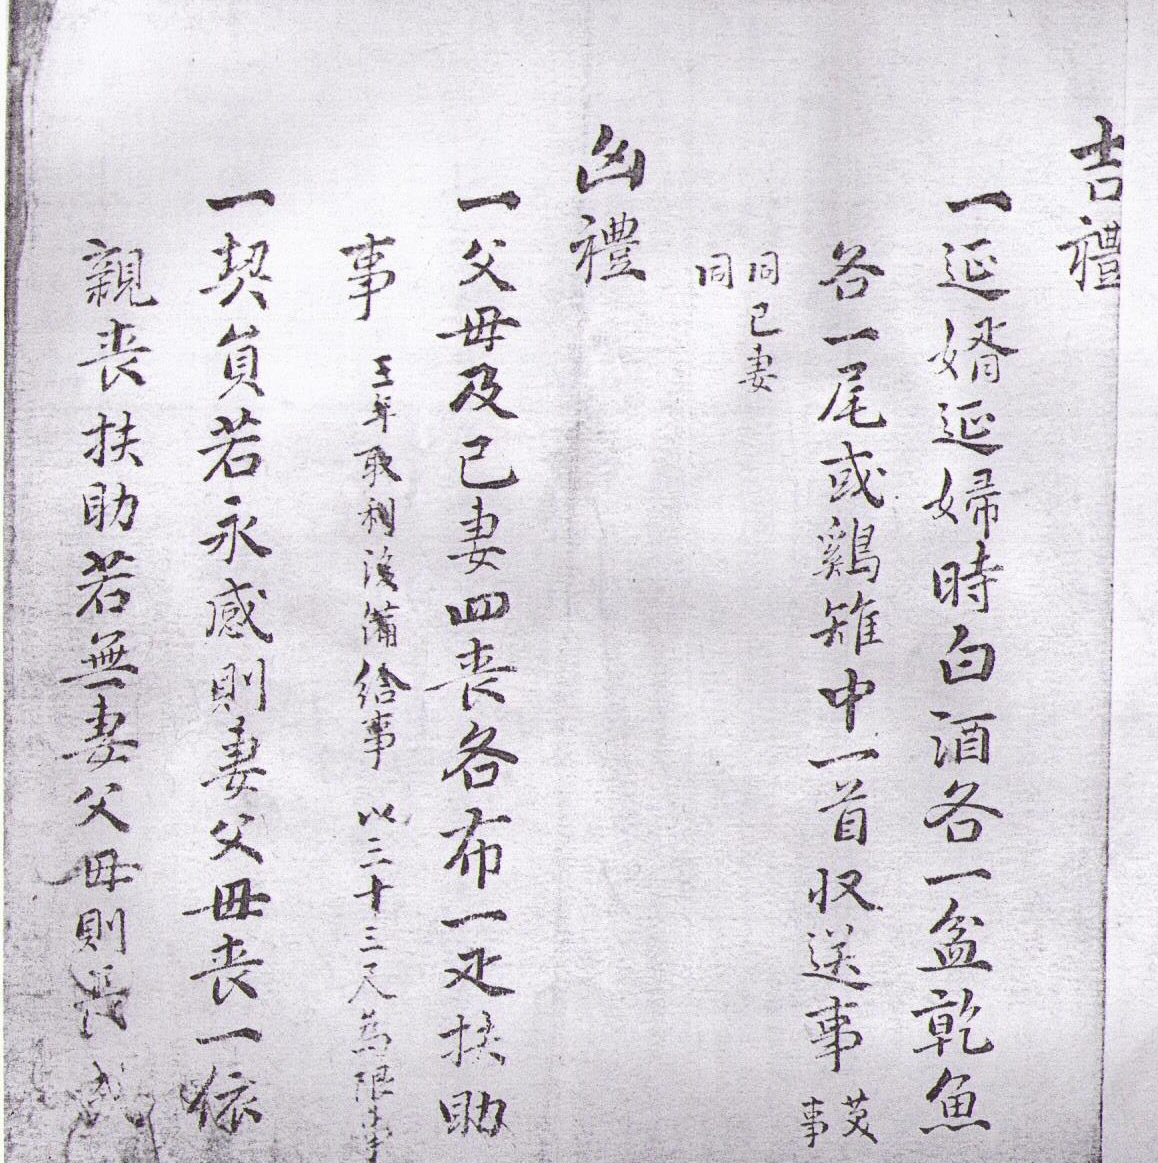 吉禮
一延婿延婦時白酒各一盆乾魚
各一尾或鷄雉中一首收送事
事
同己妻
同
凶禮
一父母及己妻四喪各布一疋扶助
事 三年取利後備給事 以三十三尺為限事
一契員若永感則妻父母喪一依
親喪扶助若無妻父母則長